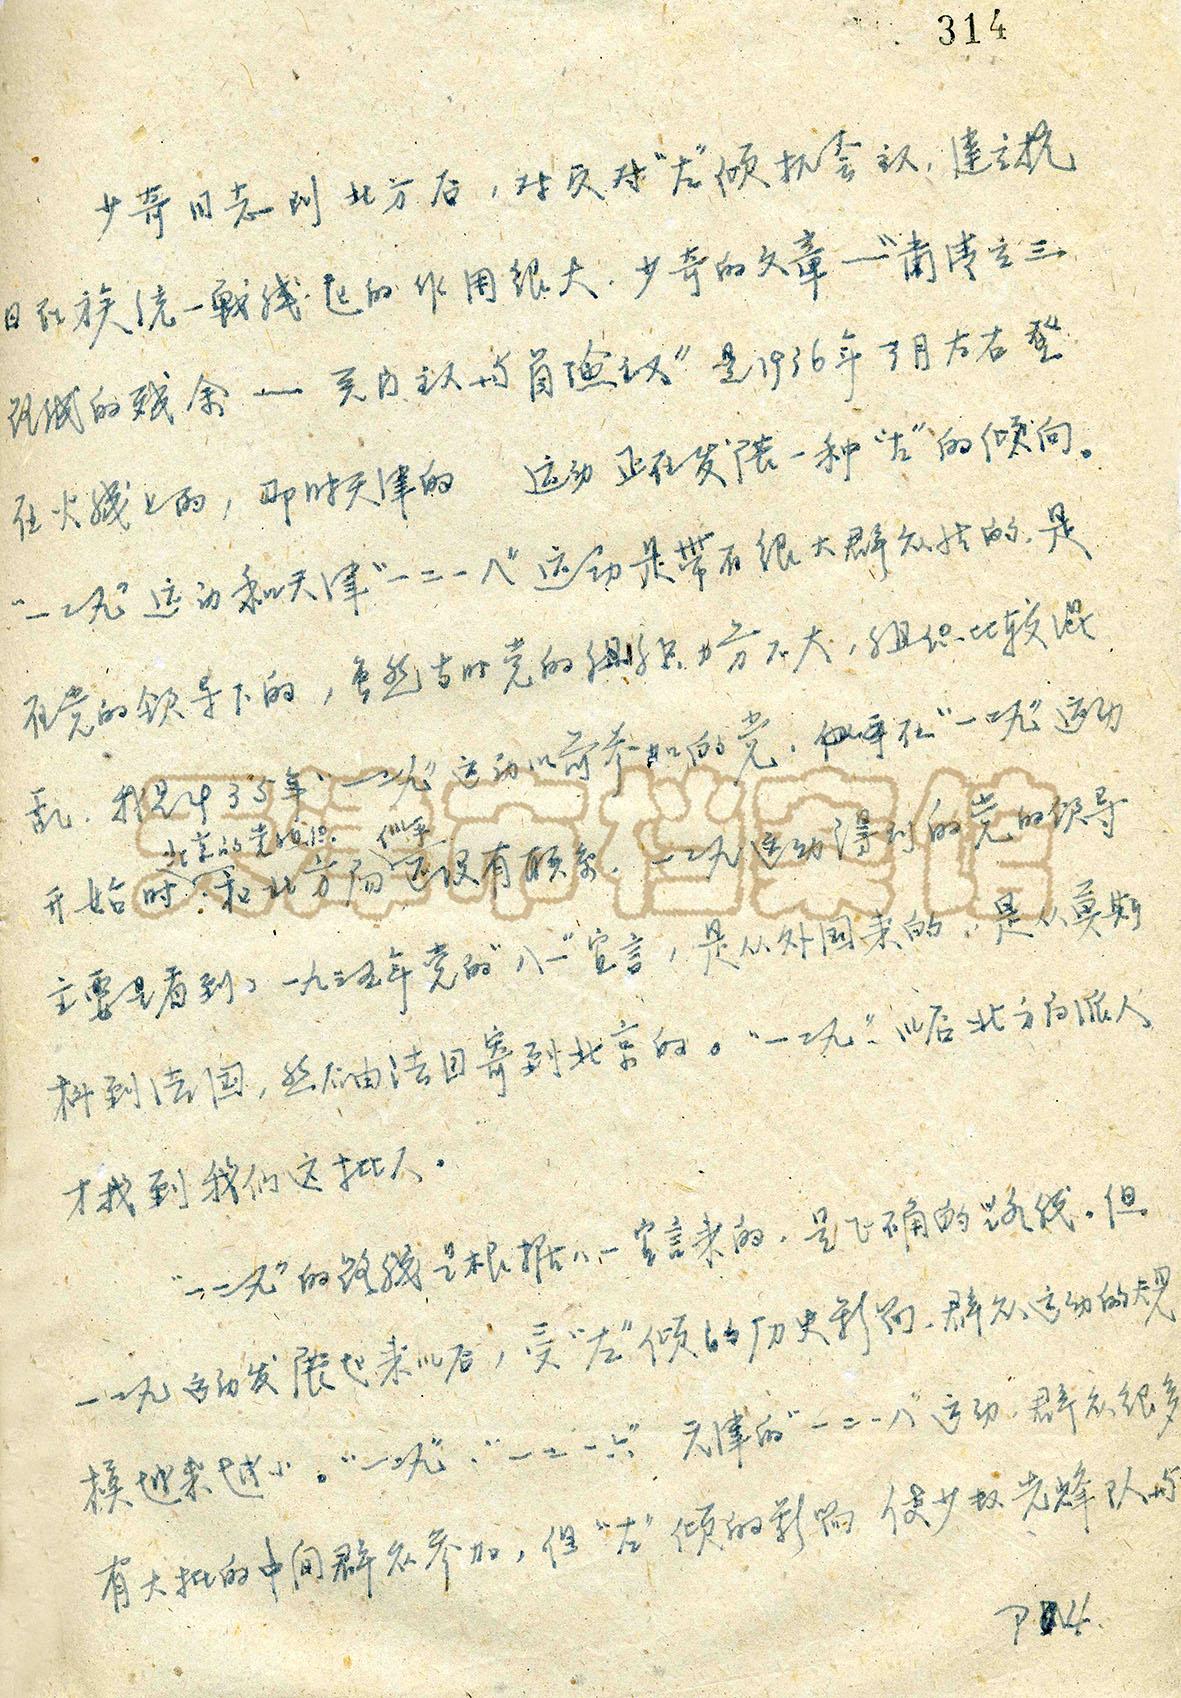 314
少奇同志到北方后，对反对“左”倾机会主义，建立抗
日民族统一战线起的作用很大。少奇的文章—“肃清立三
路线的残余—关门主义与冒险主义”是1936年 月左右登
在火线上的，那时天津的 运动正在发展一种“左”的倾向。
“一二九”运动和天津“一二一八”运动是带有很大群众性的，是
在党的领导下的，虽然当时党的组织力量不大，组织比较混
乱。我是 35年“一二九”运动以前参加的党。似乎在“一二九”运动
北京的党组织 似乎
开始时，和北方局还没有联系。一二九运动得到的党的领导
主要是看到了一九三五年党的“八一”宣言，是从外国来的，是从莫斯
科到法国，然后由法国寄到北京的。“一二九”以后北方局派人
才找到我们这批人。
“一二九”的路线是根据八一宣言来的，是正确的路线。但
一二九运动发展起来以后，受“左”倾的历史影响，群众运动的规
模越来越小。“一二九”、“一二一六” 天津的“一二一八”运动，群众很多
有大批的中间群众参加，但“左”倾的影响 使少数先锋队与
天津市档案馆